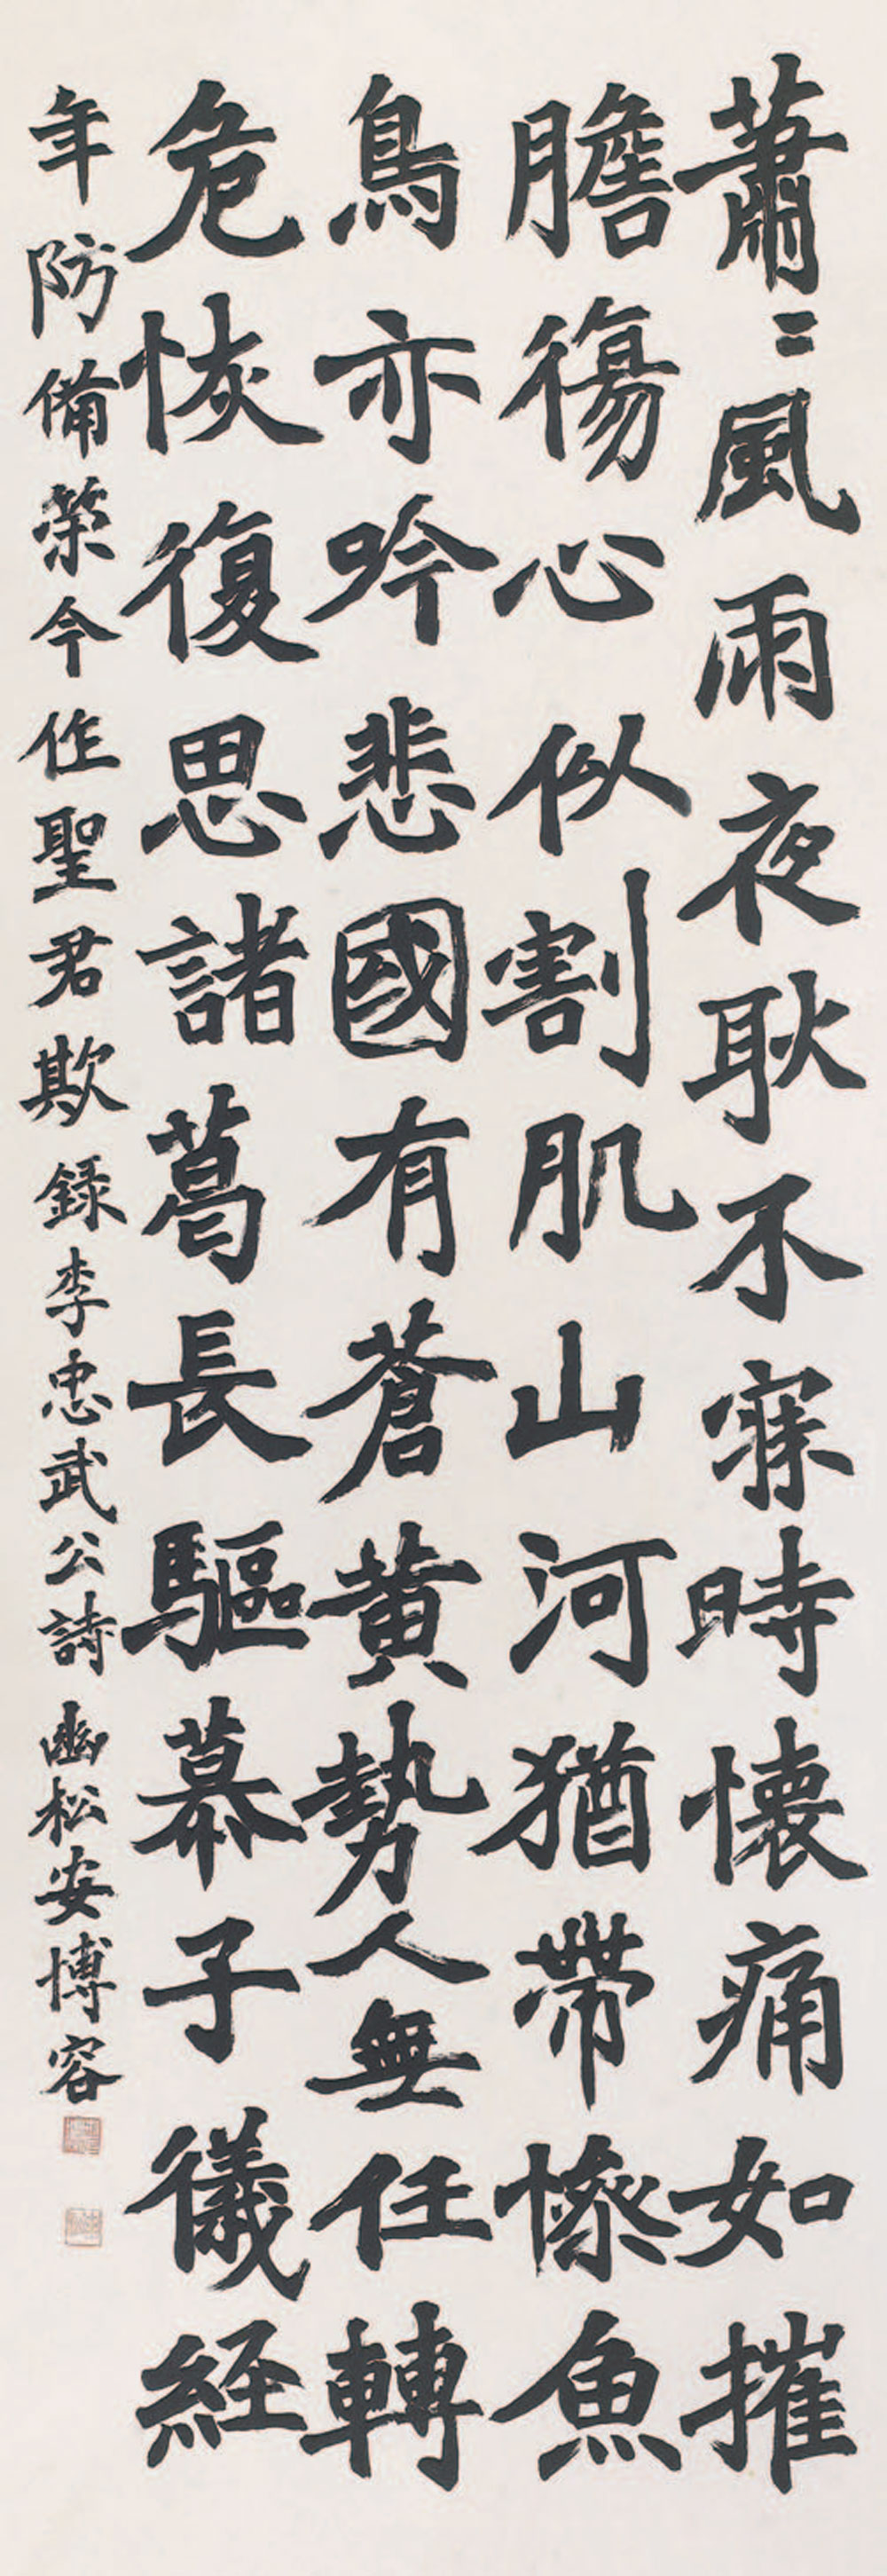 蕭〻風雨夜耿不寐時懷痛如摧
膽傷心似割肌山河猶帶慘魚
鳥亦吟悲國有蒼黃勢人無任轉
危恢復思諸葛長驅慕子儀経
年防備策今作聖君欺 錄李忠武公詩 幽松安博容